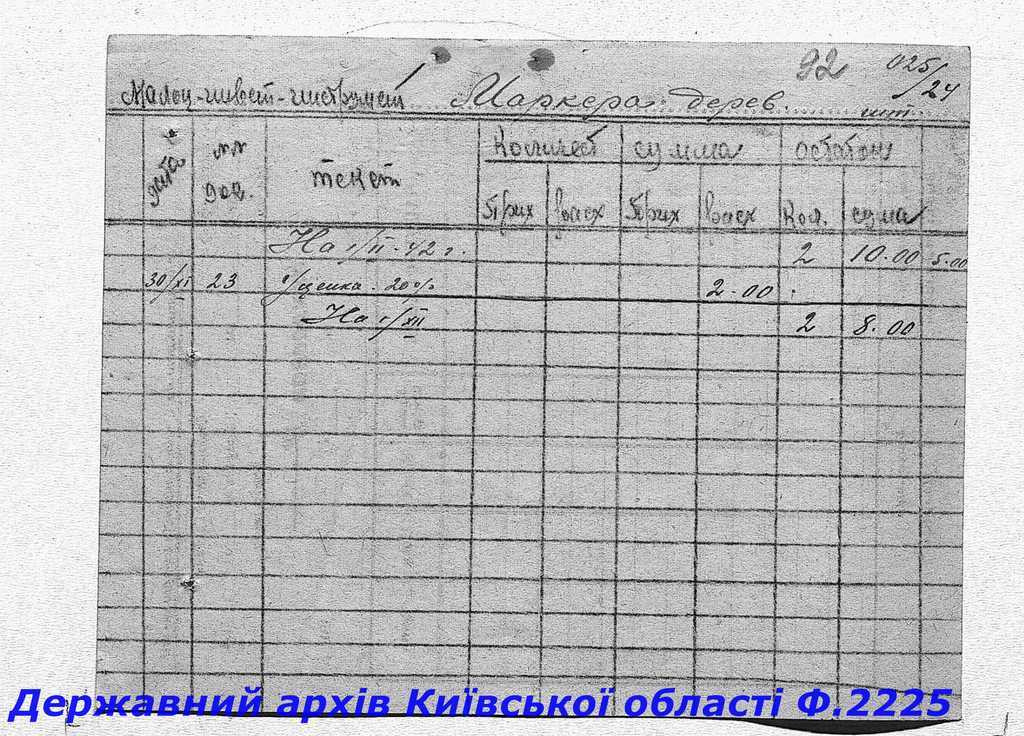 92 025/24
Малоц-инвент-инструмент Маркера дерев. шт.
дата №№ док. текст Количест сумма остаток
Прих Расх Прих Расх Кол. сума
На 1/II-42 г. 2 10.00 5.00
30/XI 23 Уценка 20% 2.00
На 1/XII 2 8.00
Державний архів Київської області Ф.2225